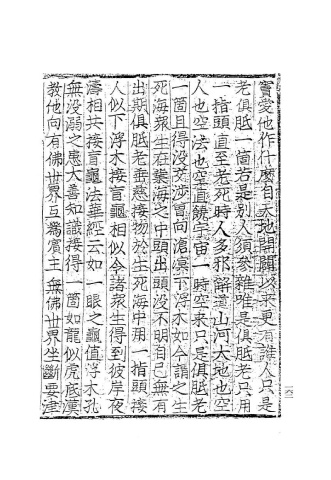 寶愛他作什麼自天地開闢以来更有誰人只是
老俱胝一箇若是別人須參雜唯是俱胝老只用
一指頭直至老死時人多邪解道山河大地也空
人也空法也空直饒宇宙一時空来只是俱胝老
一箇且得沒交涉曾向滄溟下浮木如今謂之生
死海衆生在業海之中頭出頭沒不明自己無有
出期俱胝老垂慈接物於生死海中用一指頭接
人似下浮木接盲龜相似令諸衆生得到彼岸夜
濤相共接盲龜法華經云如一眼之龜值浮木孔
無沒溺之患大善知識接得一箇如龍似虎底漢
教他向有佛世界互為賓主無佛世界坐斷要津